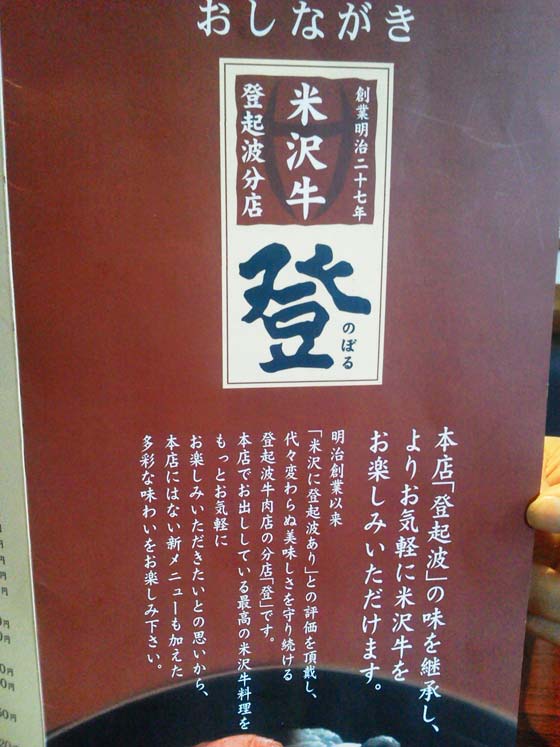 おしながき
創業明治二十七年
米沢牛
登起波分店
登
のぼる
本店「登起波」の味を継承し、
よりお気軽に米沢牛を
お楽しみいただけます。
明治創業以来
「米沢に登起波あり」との評価を頂戴し、
代々変わらぬ美味しさを守り続ける
登起波牛肉店の分店「登」です。
本店でお出ししている最高の米沢牛料理を
もっとお気軽に
お楽しみいただきたいとの思いから、
本店にはない新メニューも加えた
多彩な味わいをお楽しみ下さい。